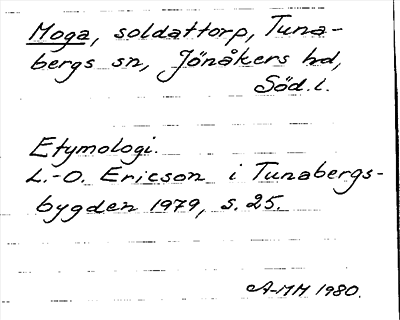 Moga, soldattorp, Tuna-
bergs sn, Jönåkers hd,
Söd. l.
Etymologi.
L.-O. Ericson i Tunabergs-
bygden 1979, s. 25.
A-MM 1980.